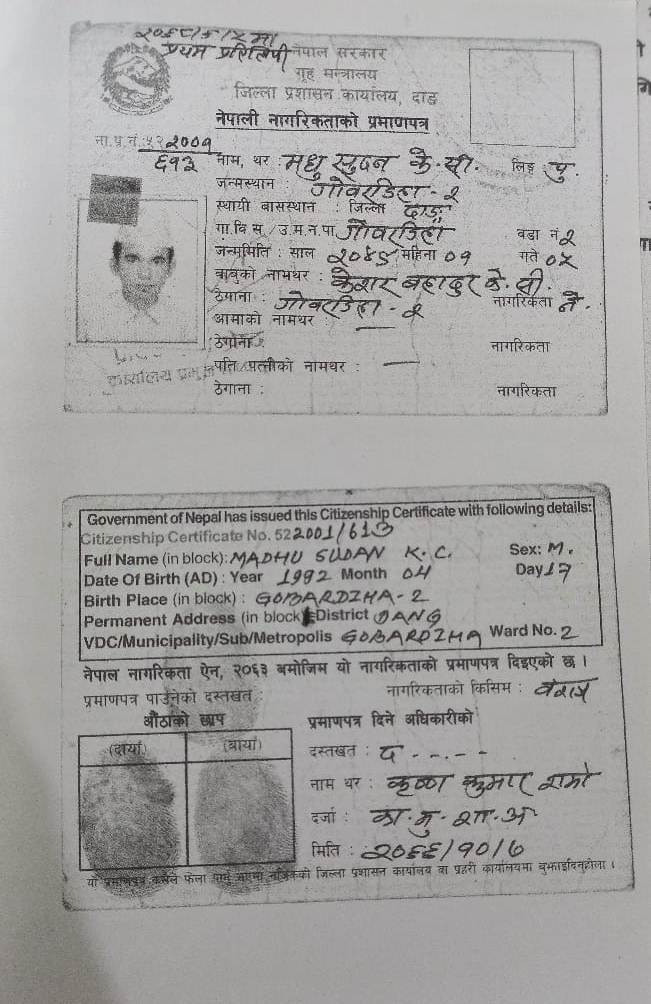 २०६८/८/२मा
प्रथम प्रतिलिपी
नेपाल सरकार
गृह मन्त्रालय
जिल्ला प्रशासन कार्यालय, दाङ
नेपाली नागरिकताको प्रमाणपत्र
ना.प्र.नं. ५२२००१
६१३
नाम, थर : मधु सुदन के.सी. लिङ्ग पु.
जन्मस्थान : गोवरडिहा - २
स्थायी बासस्थान : जिल्ला दाङ
गा.वि.स./उ.म.न.पा गोवरडिहा वडा नं २
जन्ममिति : साल २०४९ महिना ०१ गते ०५
बाबुको नामथर : केशर बहादुर के.सी.
ठेगाना : गोवरडिहा - २ नागरिकता ने.
आमाको नामथर
ठेगाना नागरिकता
पति/पत्नीको नामथर :
ठेगाना : नागरिकता
कार्यालय प्रमुख
Government of Nepal has issued this Citizenship Certificate with following details:
Citizenship Certificate No. 522001/613
Full Name (in block): MADHU SUDAN K.C. Sex: M.
Date Of Birth (AD) : Year 1992 Month 04 Day 17
Birth Place (in block) : GOBARDIHA-2
Permanent Address (in block): District DANG
VDC/Municipality/Sub/Metropolis GOBARDIHA Ward No. 2
नेपाल नागरिकता ऐन, २०६३ बमोजिम यो नागरिकताको प्रमाणपत्र दिइएको छ ।
प्रमाणपत्र पाउनेको दस्तखत : नागरिकताको किसिम : वंशज
औंठाको छाप प्रमाणपत्र दिने अधिकारीको
(दायाँ) (बायाँ)
दस्तखत : द -----
नाम थर : कृष्ण कुमार
दर्जा : का.मु.शा.अ
मिति : २०६६/१०/७
यो प्रमाणपत्र कसैले फेला पारे नजिकको जिल्ला प्रशासन कार्यालय वा प्रहरी कार्यालयमा बुझाईदिनुहोला ।